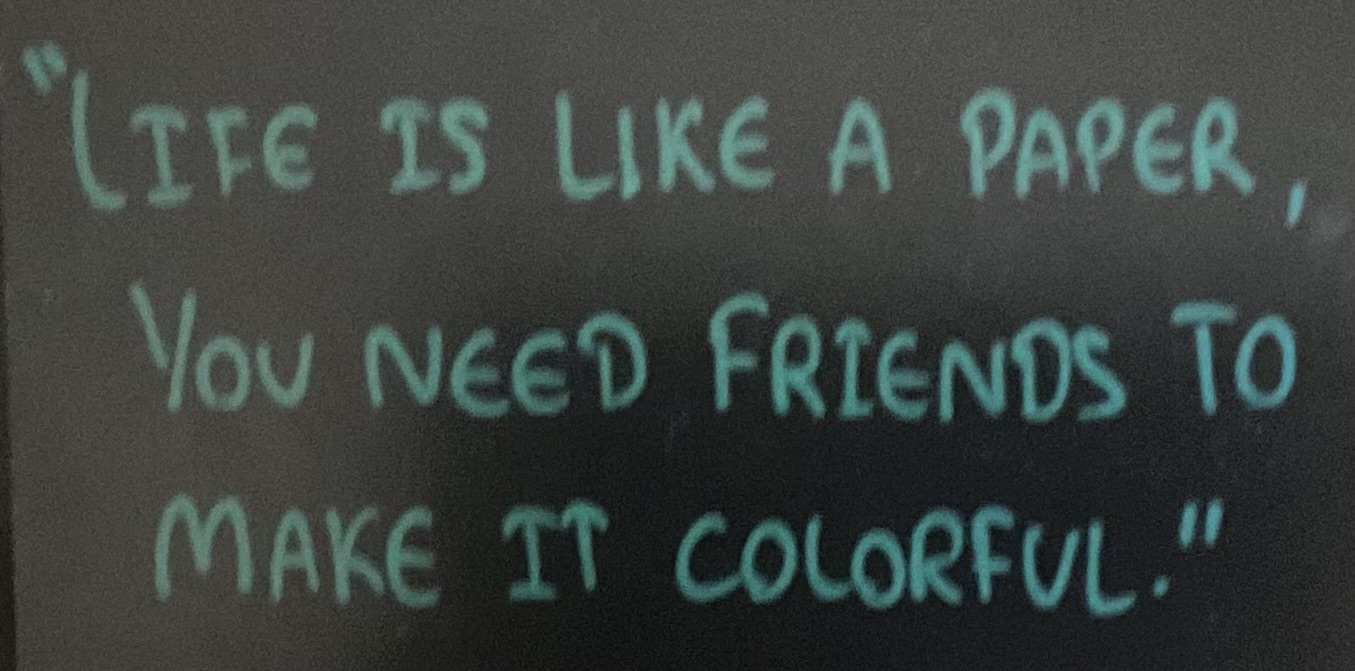 "LIFE IS LIKE A PAPER,
YOU NEED FRIENDS TO
MAKE IT COLORFUL."